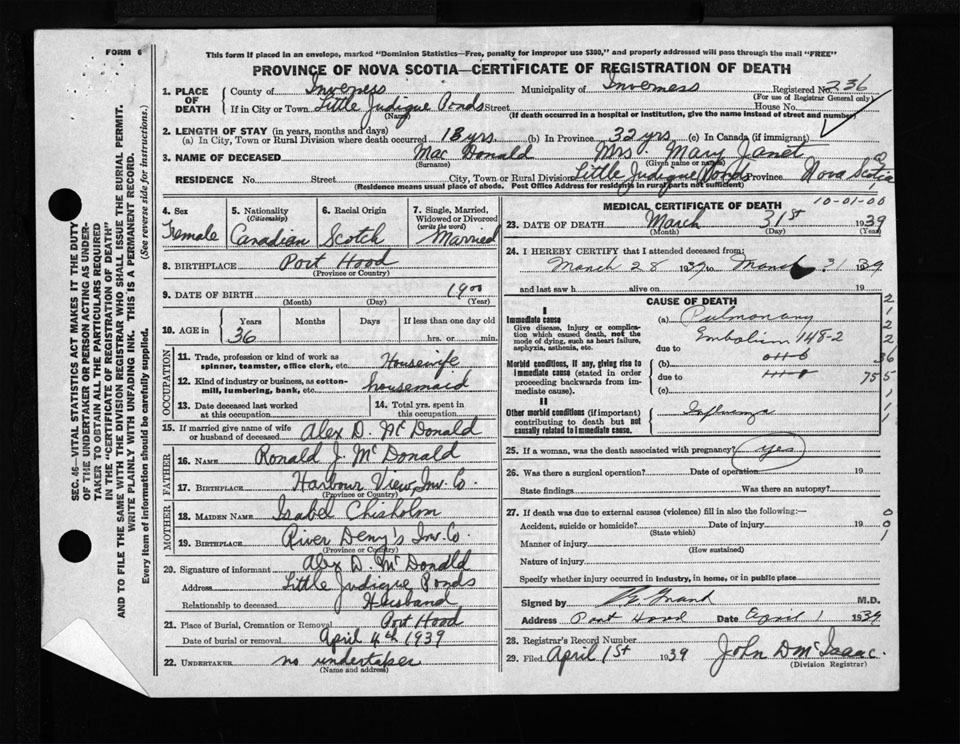 FORM 6
This form if placed in an envelope, marked "Dominion Statistics—Free, penalty for improper use $300," and properly addressed will pass through the mail "FREE"
PROVINCE OF NOVA SCOTIA—CERTIFICATE OF REGISTRATION OF DEATH
SEC. 46—VITAL STATISTICS ACT MAKES IT THE DUTY
OF THE UNDERTAKER OR PERSON ACTING AS UNDER-
TAKER TO OBTAIN ALL THE PARTICULARS REQUIRED
IN THE "CERTIFICATE OF REGISTRATION OF DEATH"
AND TO FILE THE SAME WITH THE DIVISION REGISTRAR WHO SHALL ISSUE THE BURIAL PERMIT.
WRITE PLAINLY WITH UNFADING INK. THIS IS A PERMANENT RECORD.
Every item of information should be carefully supplied. (See reverse side for instructions.)
1. PLACE OF DEATH County of Inverness Municipality of Inverness Registered No. 236
(For use of Registrar General only)
If in City or Town Little Judique Ponds Street House No.
(Name)
(If death occurred in a hospital or institution, give the name instead of street and number)
2. LENGTH OF STAY (in years, months and days)
(a) In City, Town or Rural Division where death occurred 18 yrs. (b) In Province 32 yrs (c) In Canada (if immigrant)
3. NAME OF DECEASED Mac Donald Mrs Mary Janet
(Surname) (Given name or names)
RESIDENCE No. Street City, Town or Rural Division Little Judique Ponds Province Nova Scotia
(Residence means usual place of abode. Post Office Address for residents in rural parts not sufficient)
4. Sex Female
5. Nationality (Citizenship) Canadian
6. Racial Origin Scotch
7. Single, Married, Widowed or Divorced (write the word) Married
8. BIRTHPLACE Port Hood
(Province or Country)
9. DATE OF BIRTH 1900
(Month) (Day) (Year)
10. AGE IN Years Months Days If less than one day old
36 hrs. or min.
OCCUPATION
11. Trade, profession or kind of work as spinner, teamster, office clerk, etc. Housewife
12. Kind of industry or business, as cotton-mill, lumbering, bank, etc. housemaid
13. Date deceased last worked at this occupation
14. Total yrs. spent in this occupation
15. If married give name of wife or husband of deceased Alex D. McDonald
FATHER
16. NAME Ronald J. McDonald
17. BIRTHPLACE Harbour View, Inv. Co.
(Province or Country)
MOTHER
18. MAIDEN NAME Isabel Chisholm
19. BIRTHPLACE River Deny's Inv. Co.
(Province or Country)
20. Signature of informant Alex D. McDonald
Address Little Judique Ponds
Relationship to deceased Husband
21. Place of Burial, Cremation or Removal Port Hood
Date of burial or removal April 4th 1939
22. UNDERTAKER no undertaker
(Name and address)
MEDICAL CERTIFICATE OF DEATH 10-01-00
23. DATE OF DEATH March 31st 1939
(Month) (Day) (Year)
24. I HEREBY CERTIFY that I attended deceased from:
March 28 1939 to March 31 1939
and last saw h alive on 19
CAUSE OF DEATH
I
Immediate cause (a) Pulmonary
Give disease, injury or complication which caused death, not the mode of dying, such as heart failure, asphyxia, asthenia, etc.
Embolism 148-2
due to
Morbid conditions, if any, giving rise to immediate cause (stated in order proceeding backwards from immediate cause).
(b)
due to 755
(c)
II
Other morbid conditions (if important) contributing to death but not causally related to immediate cause. Influenza
25. If a woman, was the death associated with pregnancy? yes
26. Was there a surgical operation? Date of operation 19
State findings Was there an autopsy?
27. If death was due to external causes (violence) fill in also the following:—
Accident, suicide or homicide? Date of injury 19
(State which)
Manner of injury
(How sustained)
Nature of injury
Specify whether injury occurred in industry, in home, or in public place
Signed by M.D.
Address Port Hood Date April 1 1939
28. Registrar's Record Number
29. Filed April 1st 1939 John D McIsaac.
(Division Registrar)